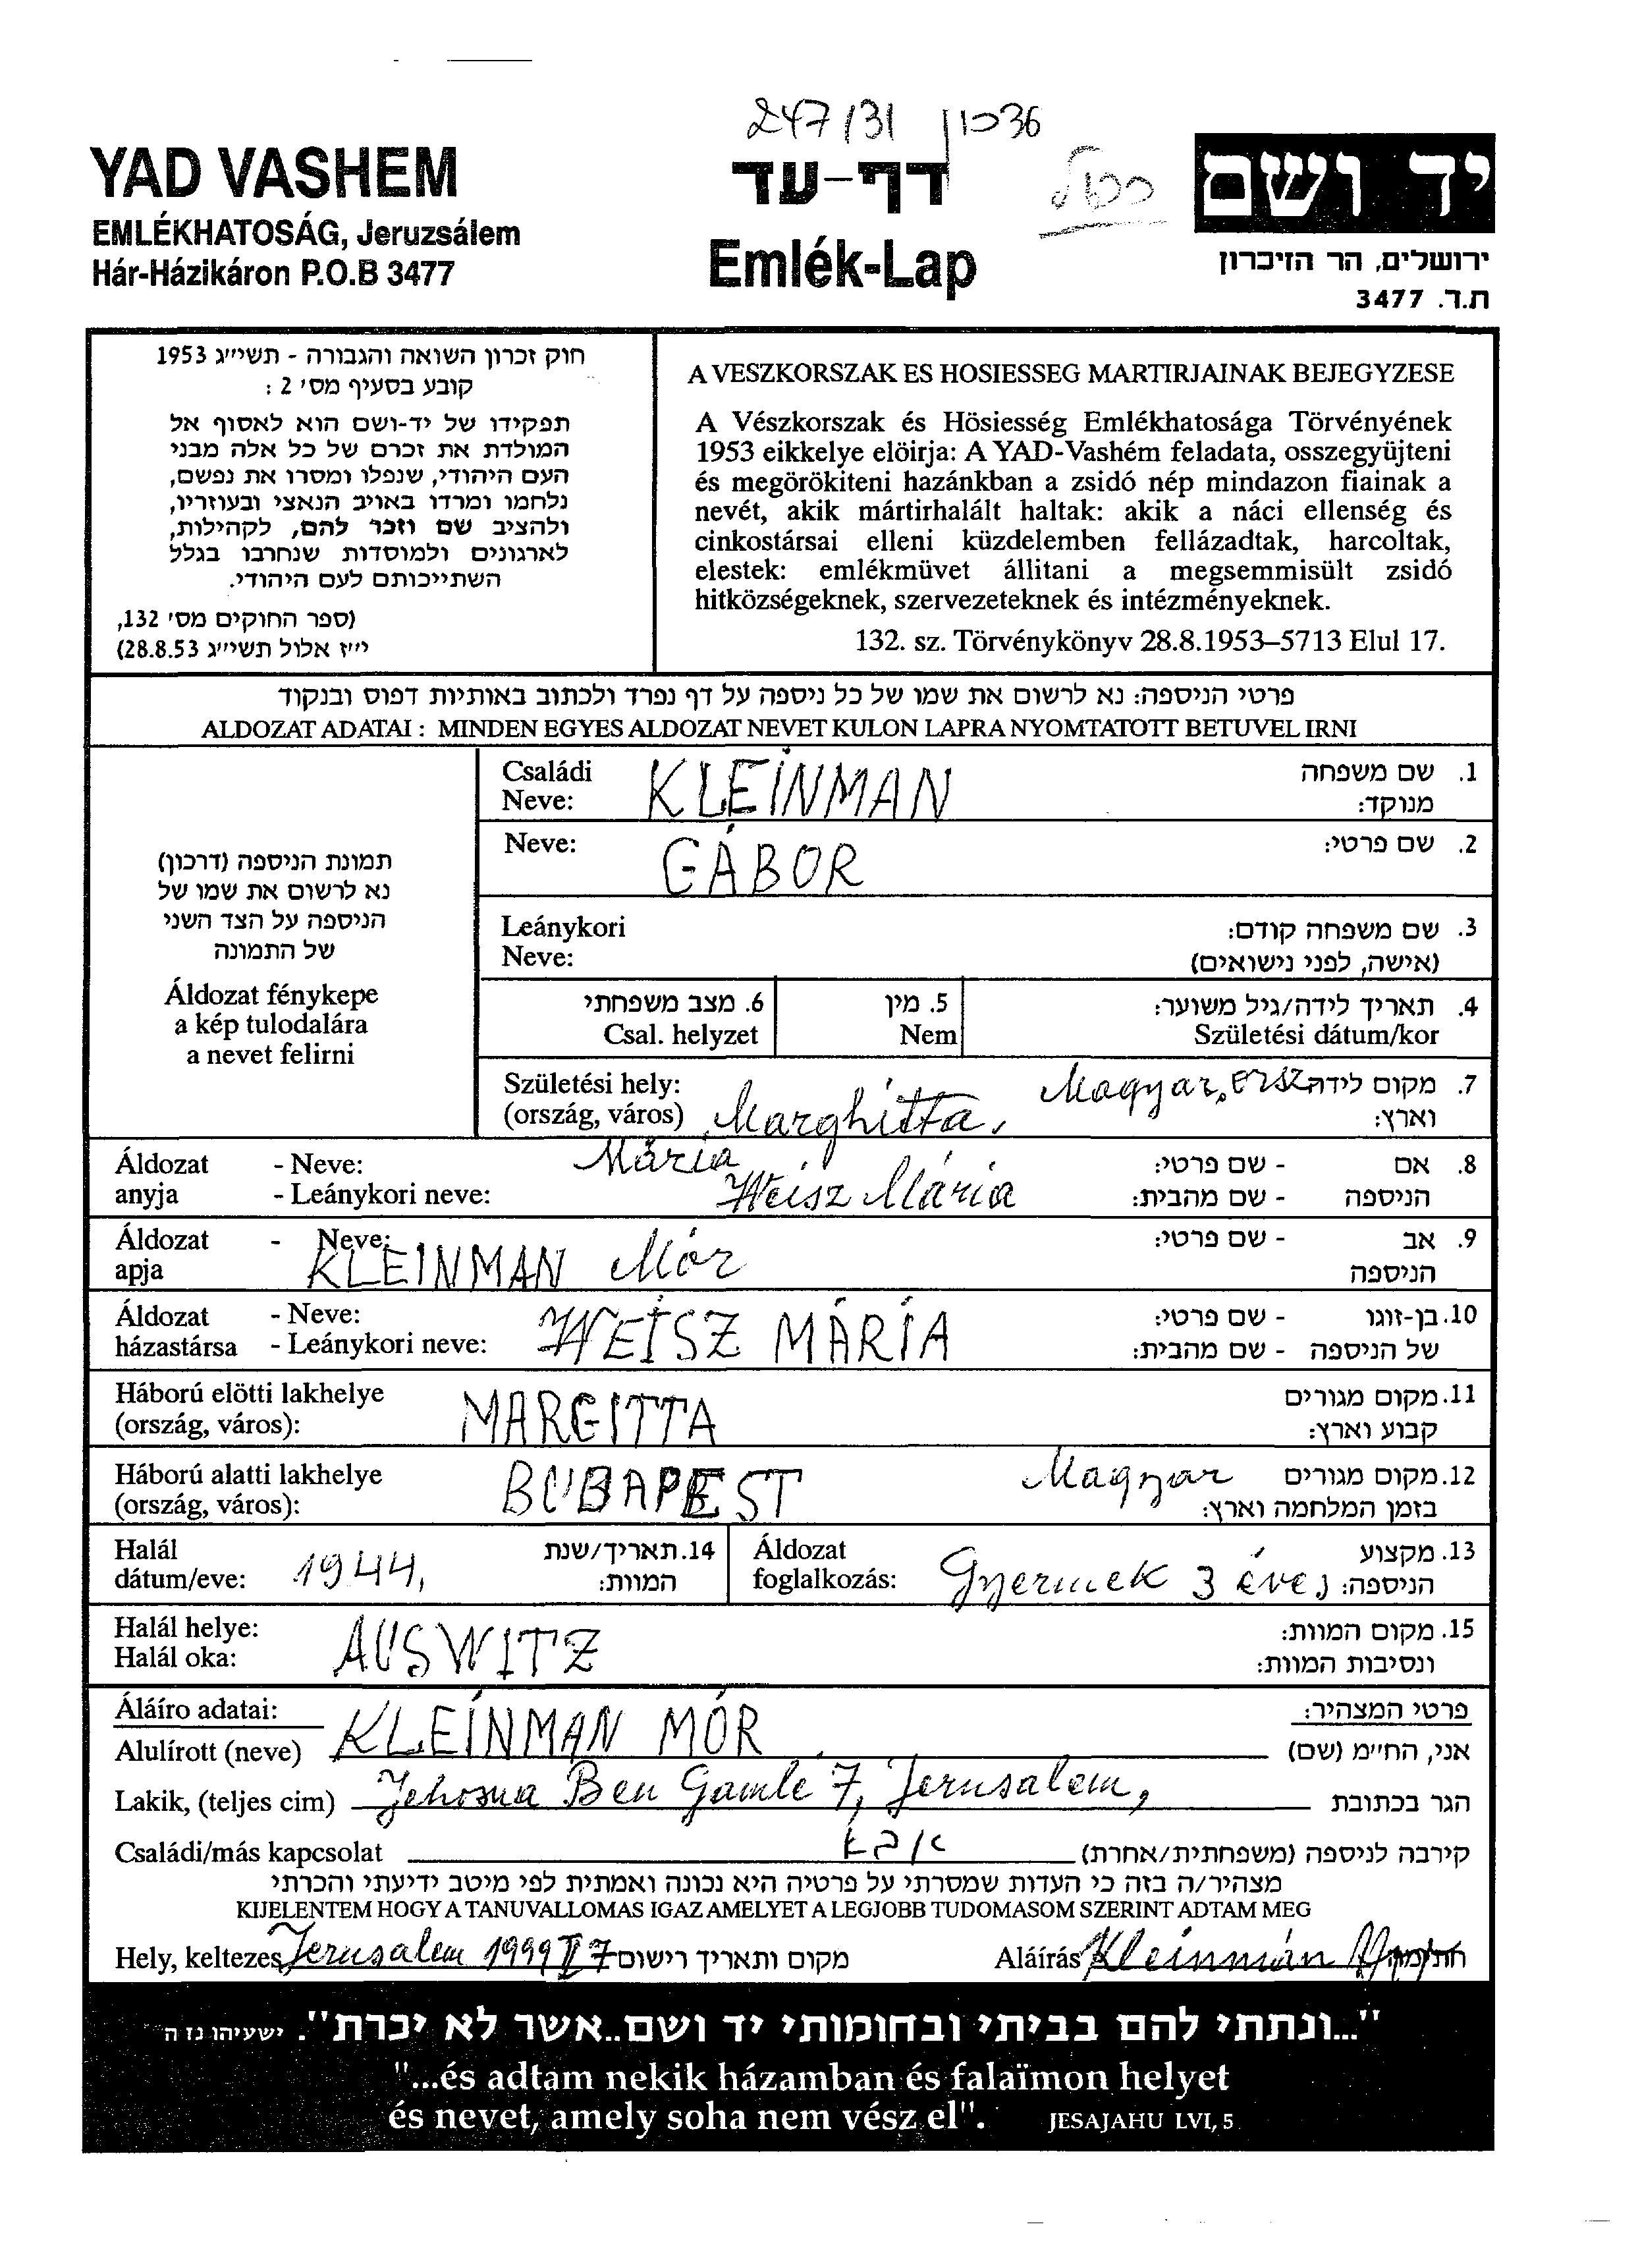 247/31
YAD VASHEM
EMLÉKHATOSÁG, Jeruzsálem
Hár-Házikáron P.O.B 3477
דף-עד
Emlék-Lap
יד ושם
ירושלים, הר הזיכרון
ת.ד. 3477
חוק זכרון השואה והגבורה - תשי״ג 1953
קובע בסעיף מס׳ 2 :
תפקידו של יד-ושם הוא לאסוף אל
המולדת את זכרם של כל אלה מבני
העם היהודי, שנפלו ומסרו את נפשם,
נלחמו ומרדו באויב הנאצי ובעוזריו,
ולהציב שם וזכר להם, לקהילות,
לארגונים ולמוסדות שנחרבו בגלל
השתייכותם לעם היהודי.
(ספר החוקים מס׳ 132,
י״ז אלול תשי״ג 28.8.53)
A VESZKORSZAK ES HOSIESSEG MARTIRJAINAK BEJEGYZESE
A Vészkorszak és Hösiesség Emlékhatosága Törvényének
1953 eikkelye elöirja: A YAD-Vashém feladata, osszegyüjteni
és megörökiteni hazánkban a zsidó nép mindazon fiainak a
nevét, akik mártirhalált haltak: akik a náci ellenség és
cinkostársai elleni küzdelemben fellázadtak, harcoltak,
elestek: emlékmüvet állitani a megsemmisült zsidó
hitközségeknek, szervezeteknek és intézményeknek.
132. sz. Törvénykönyv 28.8.1953–5713 Elul 17.
פרטי הניספה: נא לרשום את שמו של כל ניספה על דף נפרד ולכתוב באותיות דפוס ובנקוד
ALDOZAT ADATAI : MINDEN EGYES ALDOZAT NEVET KULON LAPRA NYOMTATOTT BETUVEL IRNI
תמונת הניספה (דרכון)
נא לרשום את שמו של
הניספה על הצד השני
של התמונה
Áldozat fénykepe
a kép tulodalára
a nevet felirni
Családi Neve: KLEINMAN 1. שם משפחה מנוקד:
Neve: GÁBOR 2. שם פרטי:
Leánykori Neve: 3. שם משפחה קודם: (אישה, לפני נישואים)
6. מצב משפחתי Csal. helyzet 5. מין Nem 4. תאריך לידה/גיל משוער: Születési dátum/kor
Születési hely: (ország, város) Marghitta, Magyar.orsz 7. מקום לידה וארץ:
Áldozat anyja - Neve: Mária 8. אם הניספה - שם פרטי:
- Leánykori neve: Weisz Mária - שם מהבית:
Áldozat apja - Neve: KLEINMAN Mór 9. אב הניספה - שם פרטי:
Áldozat házastársa - Neve: - Leánykori neve: WEISZ MÁRIA 10. בן-זוגו של הניספה - שם פרטי: - שם מהבית:
Háború elötti lakhelye (ország, város): MARGITTA 11. מקום מגורים קבוע וארץ:
Háború alatti lakhelye (ország, város): BUDAPEST Magyar 12. מקום מגורים בזמן המלחמה וארץ:
Halál dátum/eve: 1944, 14. תאריך/שנת המוות: Áldozat foglalkozás: Gyermek 3 éves 13. מקצוע הניספה:
Halál helye: Halál oka: AUSWITZ 15. מקום המוות: ונסיבות המוות:
Áláíro adatai: פרטי המצהיר:
Alulírott (neve) KLEINMAN MÓR אני, הח״מ (שם)
Lakik, (teljes cim) Jehosua Ben Gamle 7, Jerusalem, הגר בכתובת
Családi/más kapcsolat קירבה לניספה (משפחתית/אחרת)
מצהיר/ה בזה כי העדות שמסרתי על פרטיה היא נכונה ואמתית לפי מיטב ידיעתי והכרתי
KIJELENTEM HOGY A TANUVALLOMAS IGAZ AMELYET A LEGJOBB TUDOMASOM SZERINT ADTAM MEG
Hely, keltezes Jerusalem 1999 II 7 מקום ותאריך רישום Aláírás Kleinmán חתימה
"...ונתתי להם בביתי ובחומותי יד ושם..אשר לא יכרת". ישעיהו נז ה
"...és adtam nekik házamban és falaïmon helyet
és nevet, amely soha nem vész el". JESAJAHU LVI, 5